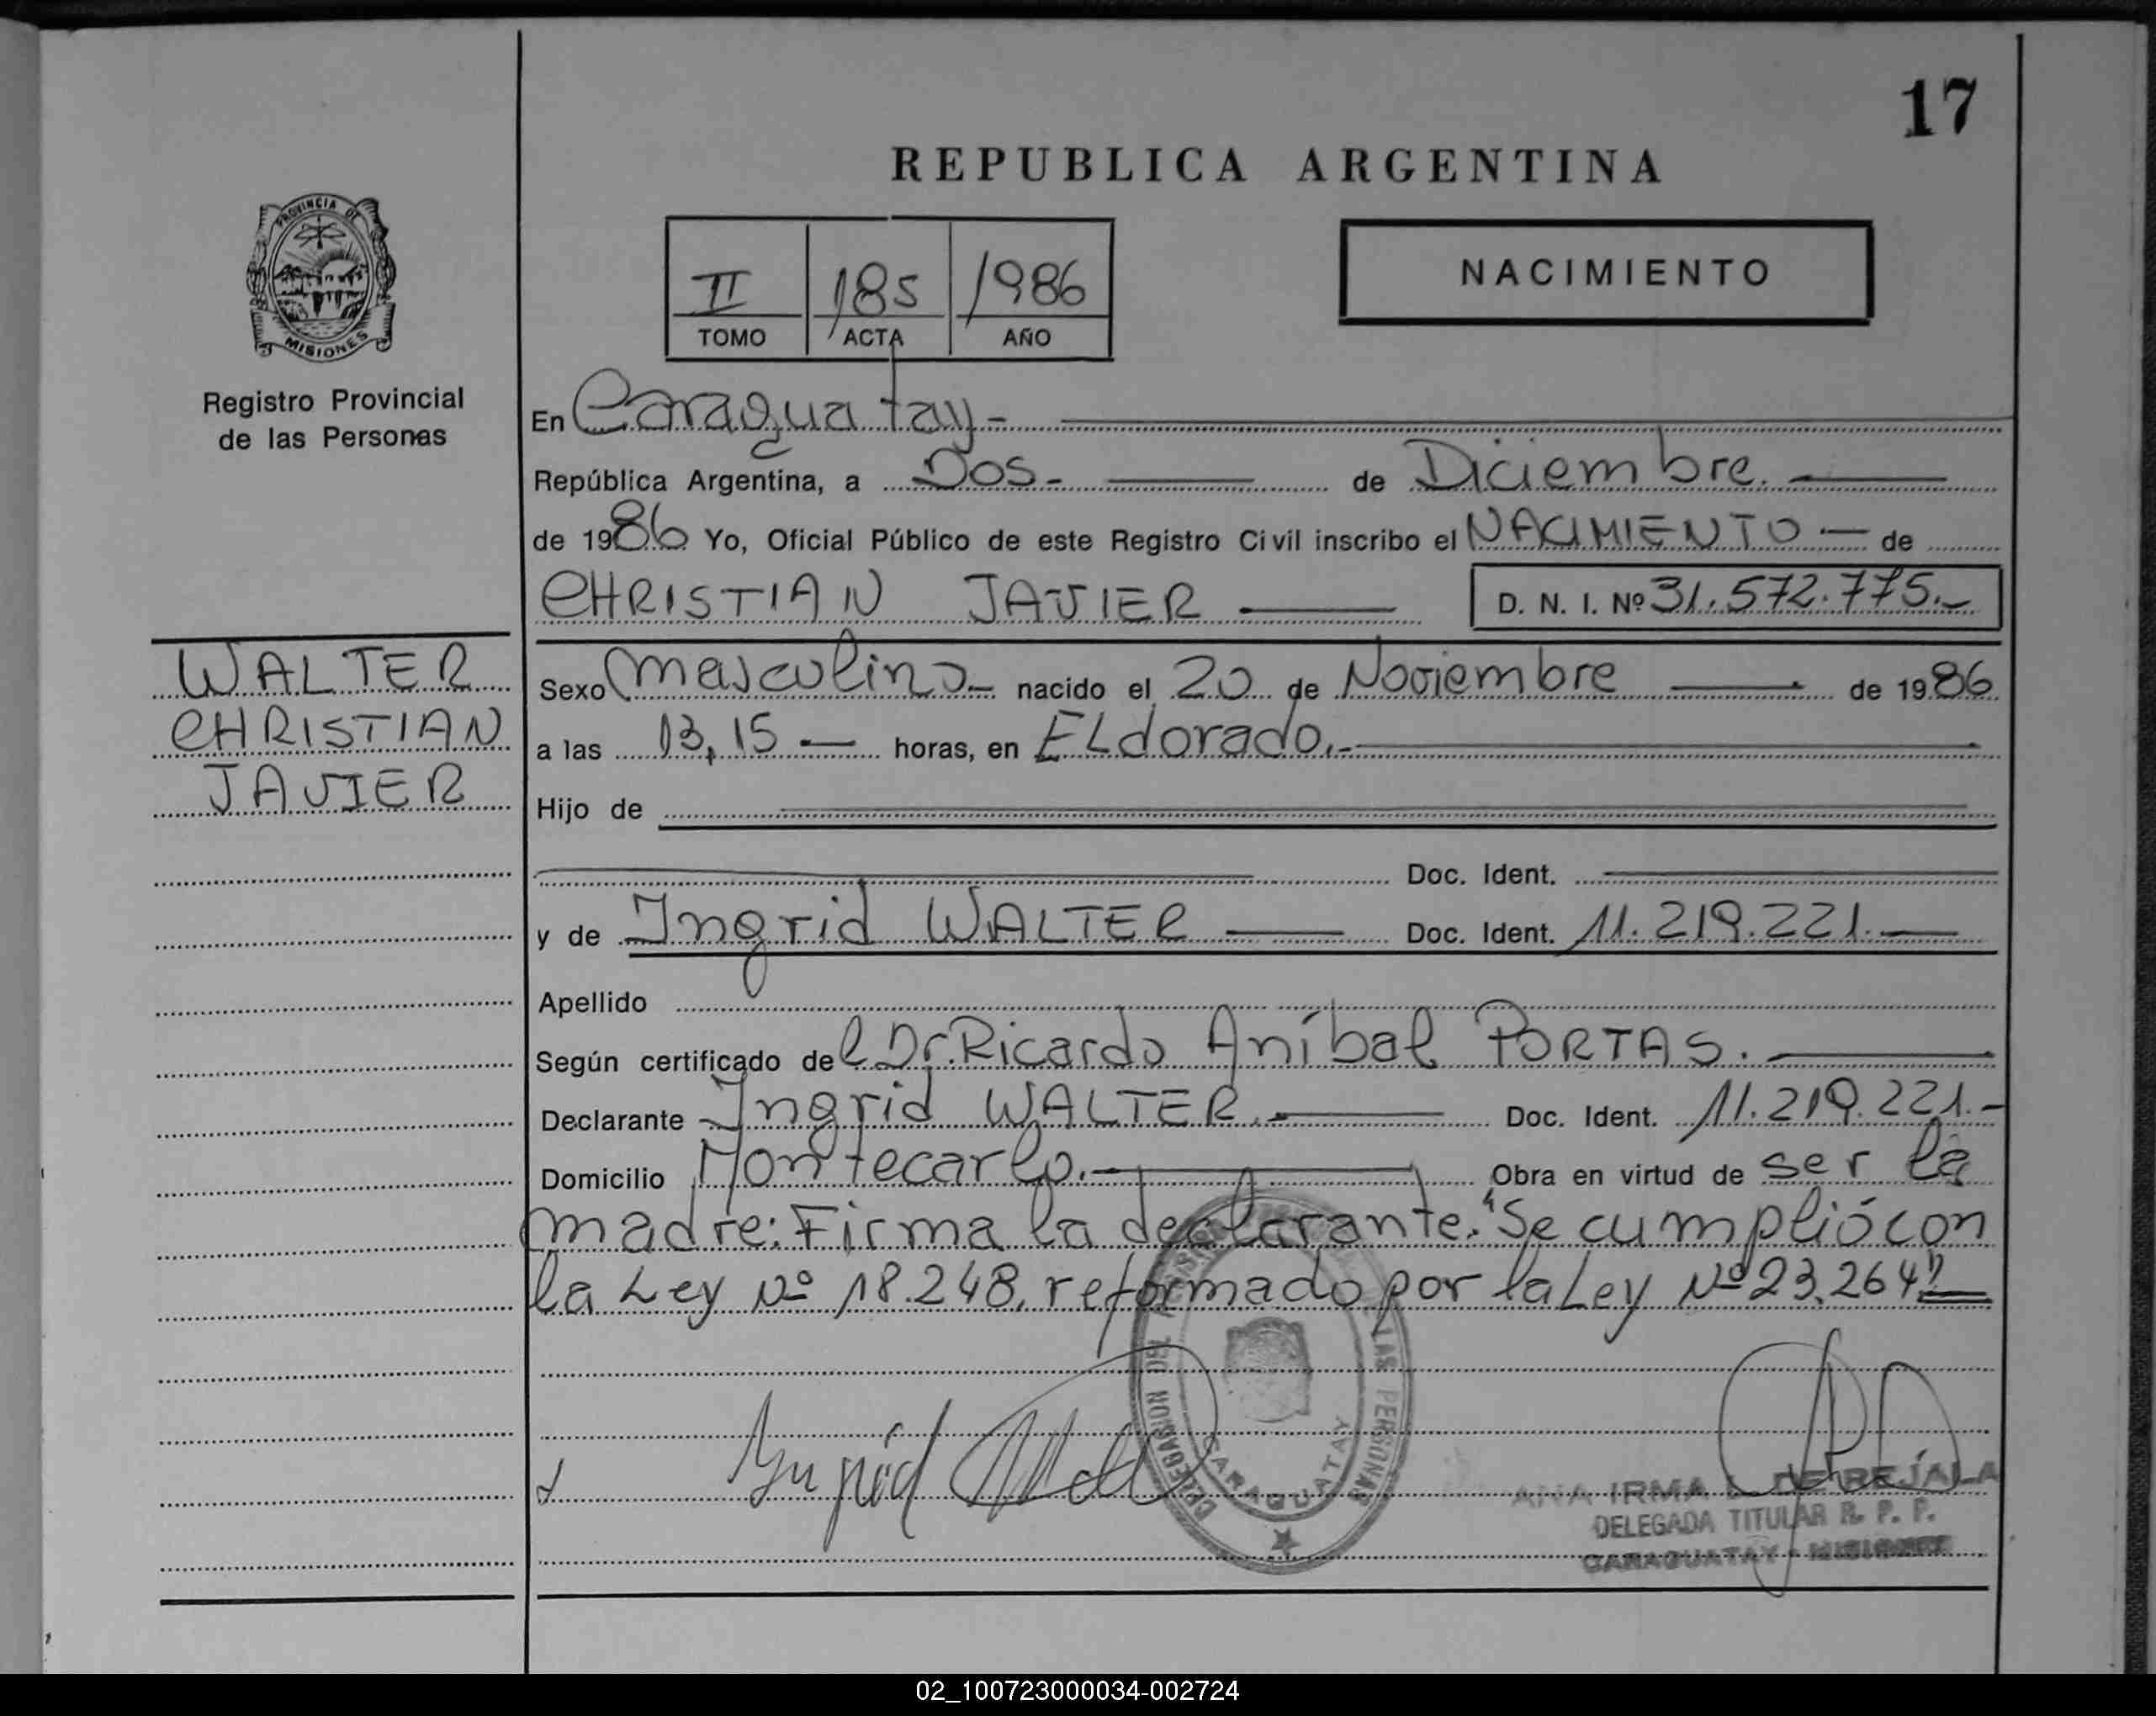 17
REPUBLICA ARGENTINA
PROVINCIA DE
MISIONES
Registro Provincial
de las Personas
II 185 1986
TOMO ACTA AÑO
NACIMIENTO
En Caraguatay-
República Argentina, a Dos- de Diciembre.
de 1986 Yo, Oficial Público de este Registro Civil inscribo el NACIMIENTO — de
CHRISTIAN JAVIER — D. N. I. Nº 31.572.775.-
WALTER
CHRISTIAN
JAVIER
Sexo Masculino- nacido el 20 de Noviembre — de 1986
a las 13,15 — horas, en ELdorado.-
Hijo de
Doc. Ident.
y de Ingrid WALTER — Doc. Ident. 11.219.221.—
Apellido
Según certificado del Dr. Ricardo Aníbal PORTAS.
Declarante Ingrid WALTER.- Doc. Ident. 11.219.221.-
Domicilio Montecarlo.- Obra en virtud de ser la
madre: Firma la declarante. "Se cumplió con
la Ley Nº 18.248, reformado por la Ley Nº 23.264"
Ingrid
DELEGACION DEL LAS PERSONAS
CARAGUATAY
ANA IRMA DE BEJALA
DELEGADA TITULAR R. P. P.
CARAGUATAY - MISIONES
02_100723000034-002724